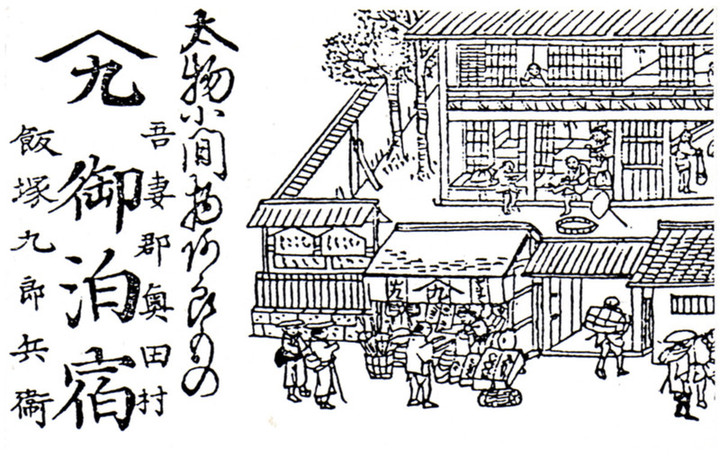 太物小間物阿良もの
吾妻郡奥田村
九 御泊宿
飯塚九郎兵衛
九